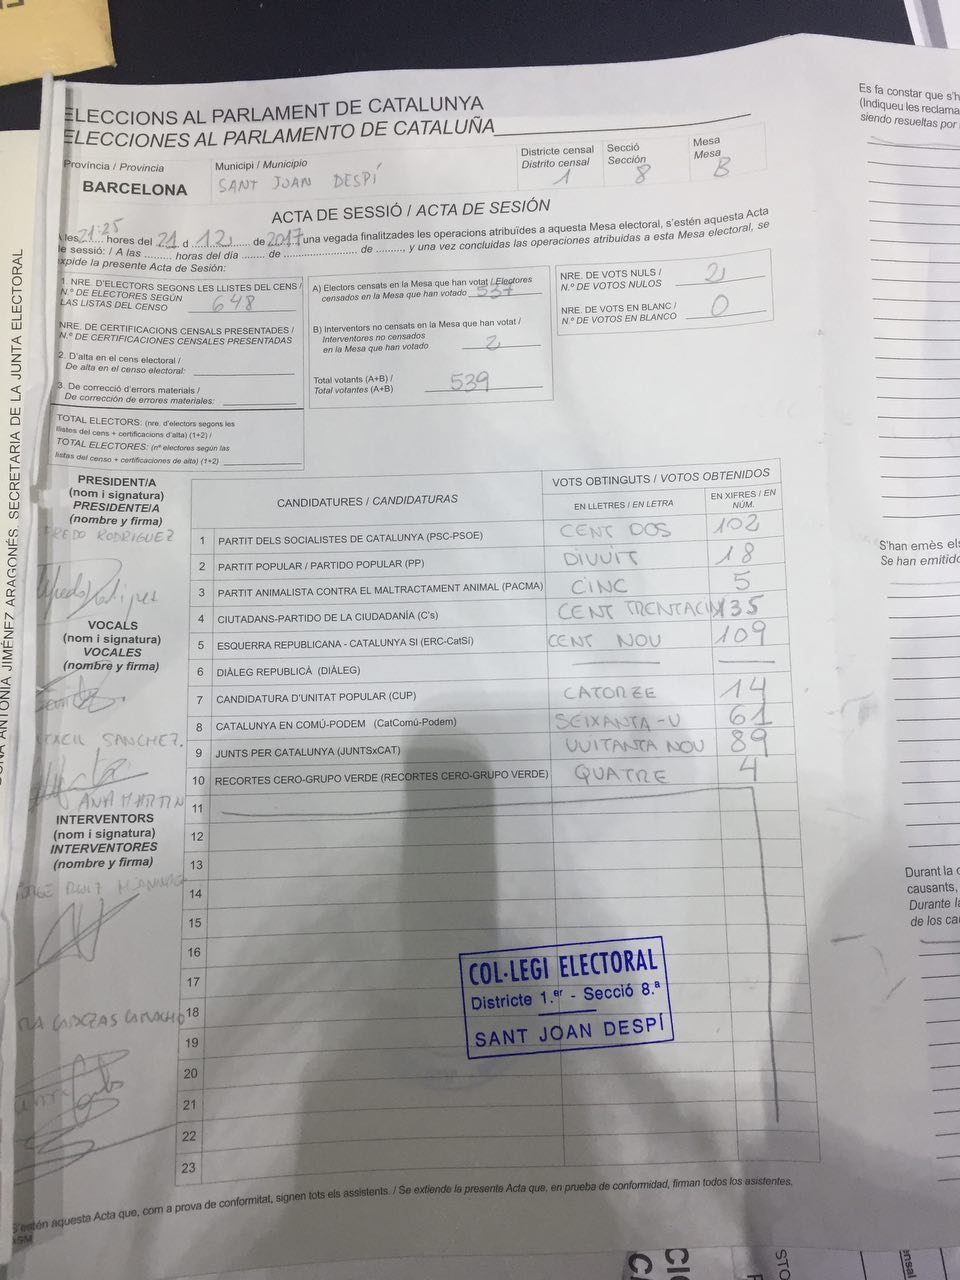 ELECCIONS AL PARLAMENT DE CATALUNYA
ELECCIONES AL PARLAMENTO DE CATALUÑA
Província / Provincia
BARCELONA
Municipi / Municipio
SANT JOAN DESPÍ
Districte censal
Distrito censal
1
Secció
Sección
8
Mesa
Mesa
B
ACTA DE SESSIÓ / ACTA DE SESIÓN
A les 21:25 hores del 21 d 12 de 2017 una vegada finalitzades les operacions atribuïdes a aquesta Mesa electoral, s'estén aquesta Acta
de sessió: / A las ........ horas del día ........ de ........................ de ........, y una vez concluidas las operaciones atribuidas a esta Mesa electoral, se
expide la presente Acta de Sesión:
1. NRE. D'ELECTORS SEGONS LES LLISTES DEL CENS /
N.º DE ELECTORES SEGÚN
LAS LISTAS DEL CENSO 648
NRE. DE CERTIFICACIONS CENSALS PRESENTADES /
N.º DE CERTIFICACIONES CENSALES PRESENTADAS
2. D'alta en el cens electoral /
De alta en el censo electoral:
3. De correcció d'errors materials /
De corrección de errores materiales:
TOTAL ELECTORS: (nre. d'electors segons les
llistes del cens + certificacions d'alta) (1+2) /
TOTAL ELECTORES: (nº electores según las
listas del censo + certificaciones de alta) (1+2)
A) Electors censats en la Mesa que han votat / Electores
censados en la Mesa que han votado 537
B) Interventors no censats en la Mesa que han votat /
Interventores no censados
en la Mesa que han votado 2
Total votants (A+B) /
Total votantes (A+B) 539
NRE. DE VOTS NULS /
N.º DE VOTOS NULOS 2
NRE. DE VOTS EN BLANC /
N.º DE VOTOS EN BLANCO 0
CANDIDATURES / CANDIDATURAS
VOTS OBTINGUTS / VOTOS OBTENIDOS
EN LLETRES / EN LETRA
EN XIFRES / EN
NÚM.
1 PARTIT DELS SOCIALISTES DE CATALUNYA (PSC-PSOE) CENT DOS 102
2 PARTIT POPULAR / PARTIDO POPULAR (PP) DIVUIT 18
3 PARTIT ANIMALISTA CONTRA EL MALTRACTAMENT ANIMAL (PACMA) CINC 5
4 CIUTADANS-PARTIDO DE LA CIUDADANÍA (C's) CENT TRENTACIN 135
5 ESQUERRA REPUBLICANA - CATALUNYA SI (ERC-CatSí) CENT NOU 109
6 DIÀLEG REPUBLICÀ (DIÀLEG)
7 CANDIDATURA D'UNITAT POPULAR (CUP) CATORZE 14
8 CATALUNYA EN COMÚ-PODEM (CatComú-Podem) SEIXANTA-U 61
9 JUNTS PER CATALUNYA (JUNTSxCAT) VUITANTA NOU 89
10 RECORTES CERO-GRUPO VERDE (RECORTES CERO-GRUPO VERDE) QUATRE 4
11
12
13
14
15
16
17
18
19
20
21
22
23
PRESIDENT/A
(nom i signatura)
PRESIDENTE/A
(nombre y firma)
FREDO RODRIGUEZ
VOCALS
(nom i signatura)
VOCALES
(nombre y firma)
SANCHEZ.
ANA MARTIN
INTERVENTORS
(nom i signatura)
INTERVENTORES
(nombre y firma)
RUIZ
CABEZAS CAMACHO
COL·LEGI ELECTORAL
Districte 1.er - Secció 8.ª
SANT JOAN DESPÍ
S'estén aquesta Acta que, com a prova de conformitat, signen tots els assistents. / Se extiende la presente Acta que, en prueba de conformidad, firman todos los asistentes.
ANTONIA JIMÉNEZ ARAGONÉS, SECRETARIA DE LA JUNTA ELECTORAL
Es fa constar que s'h
(Indiqueu les reclama
siendo resueltas por
S'han emès els
Se han emitido
Durant la
causants,
Durante la
de los ca